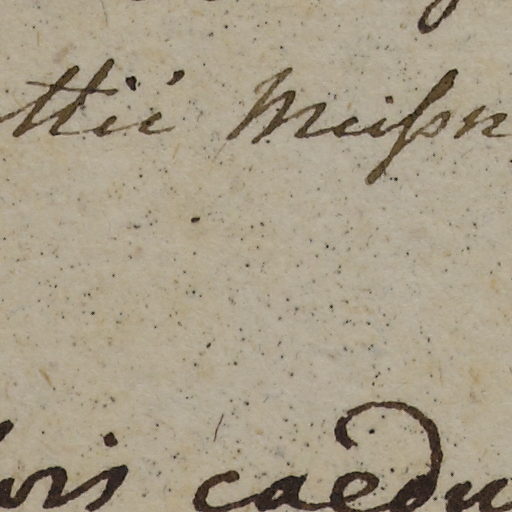 ttii Meißn
oris caedu